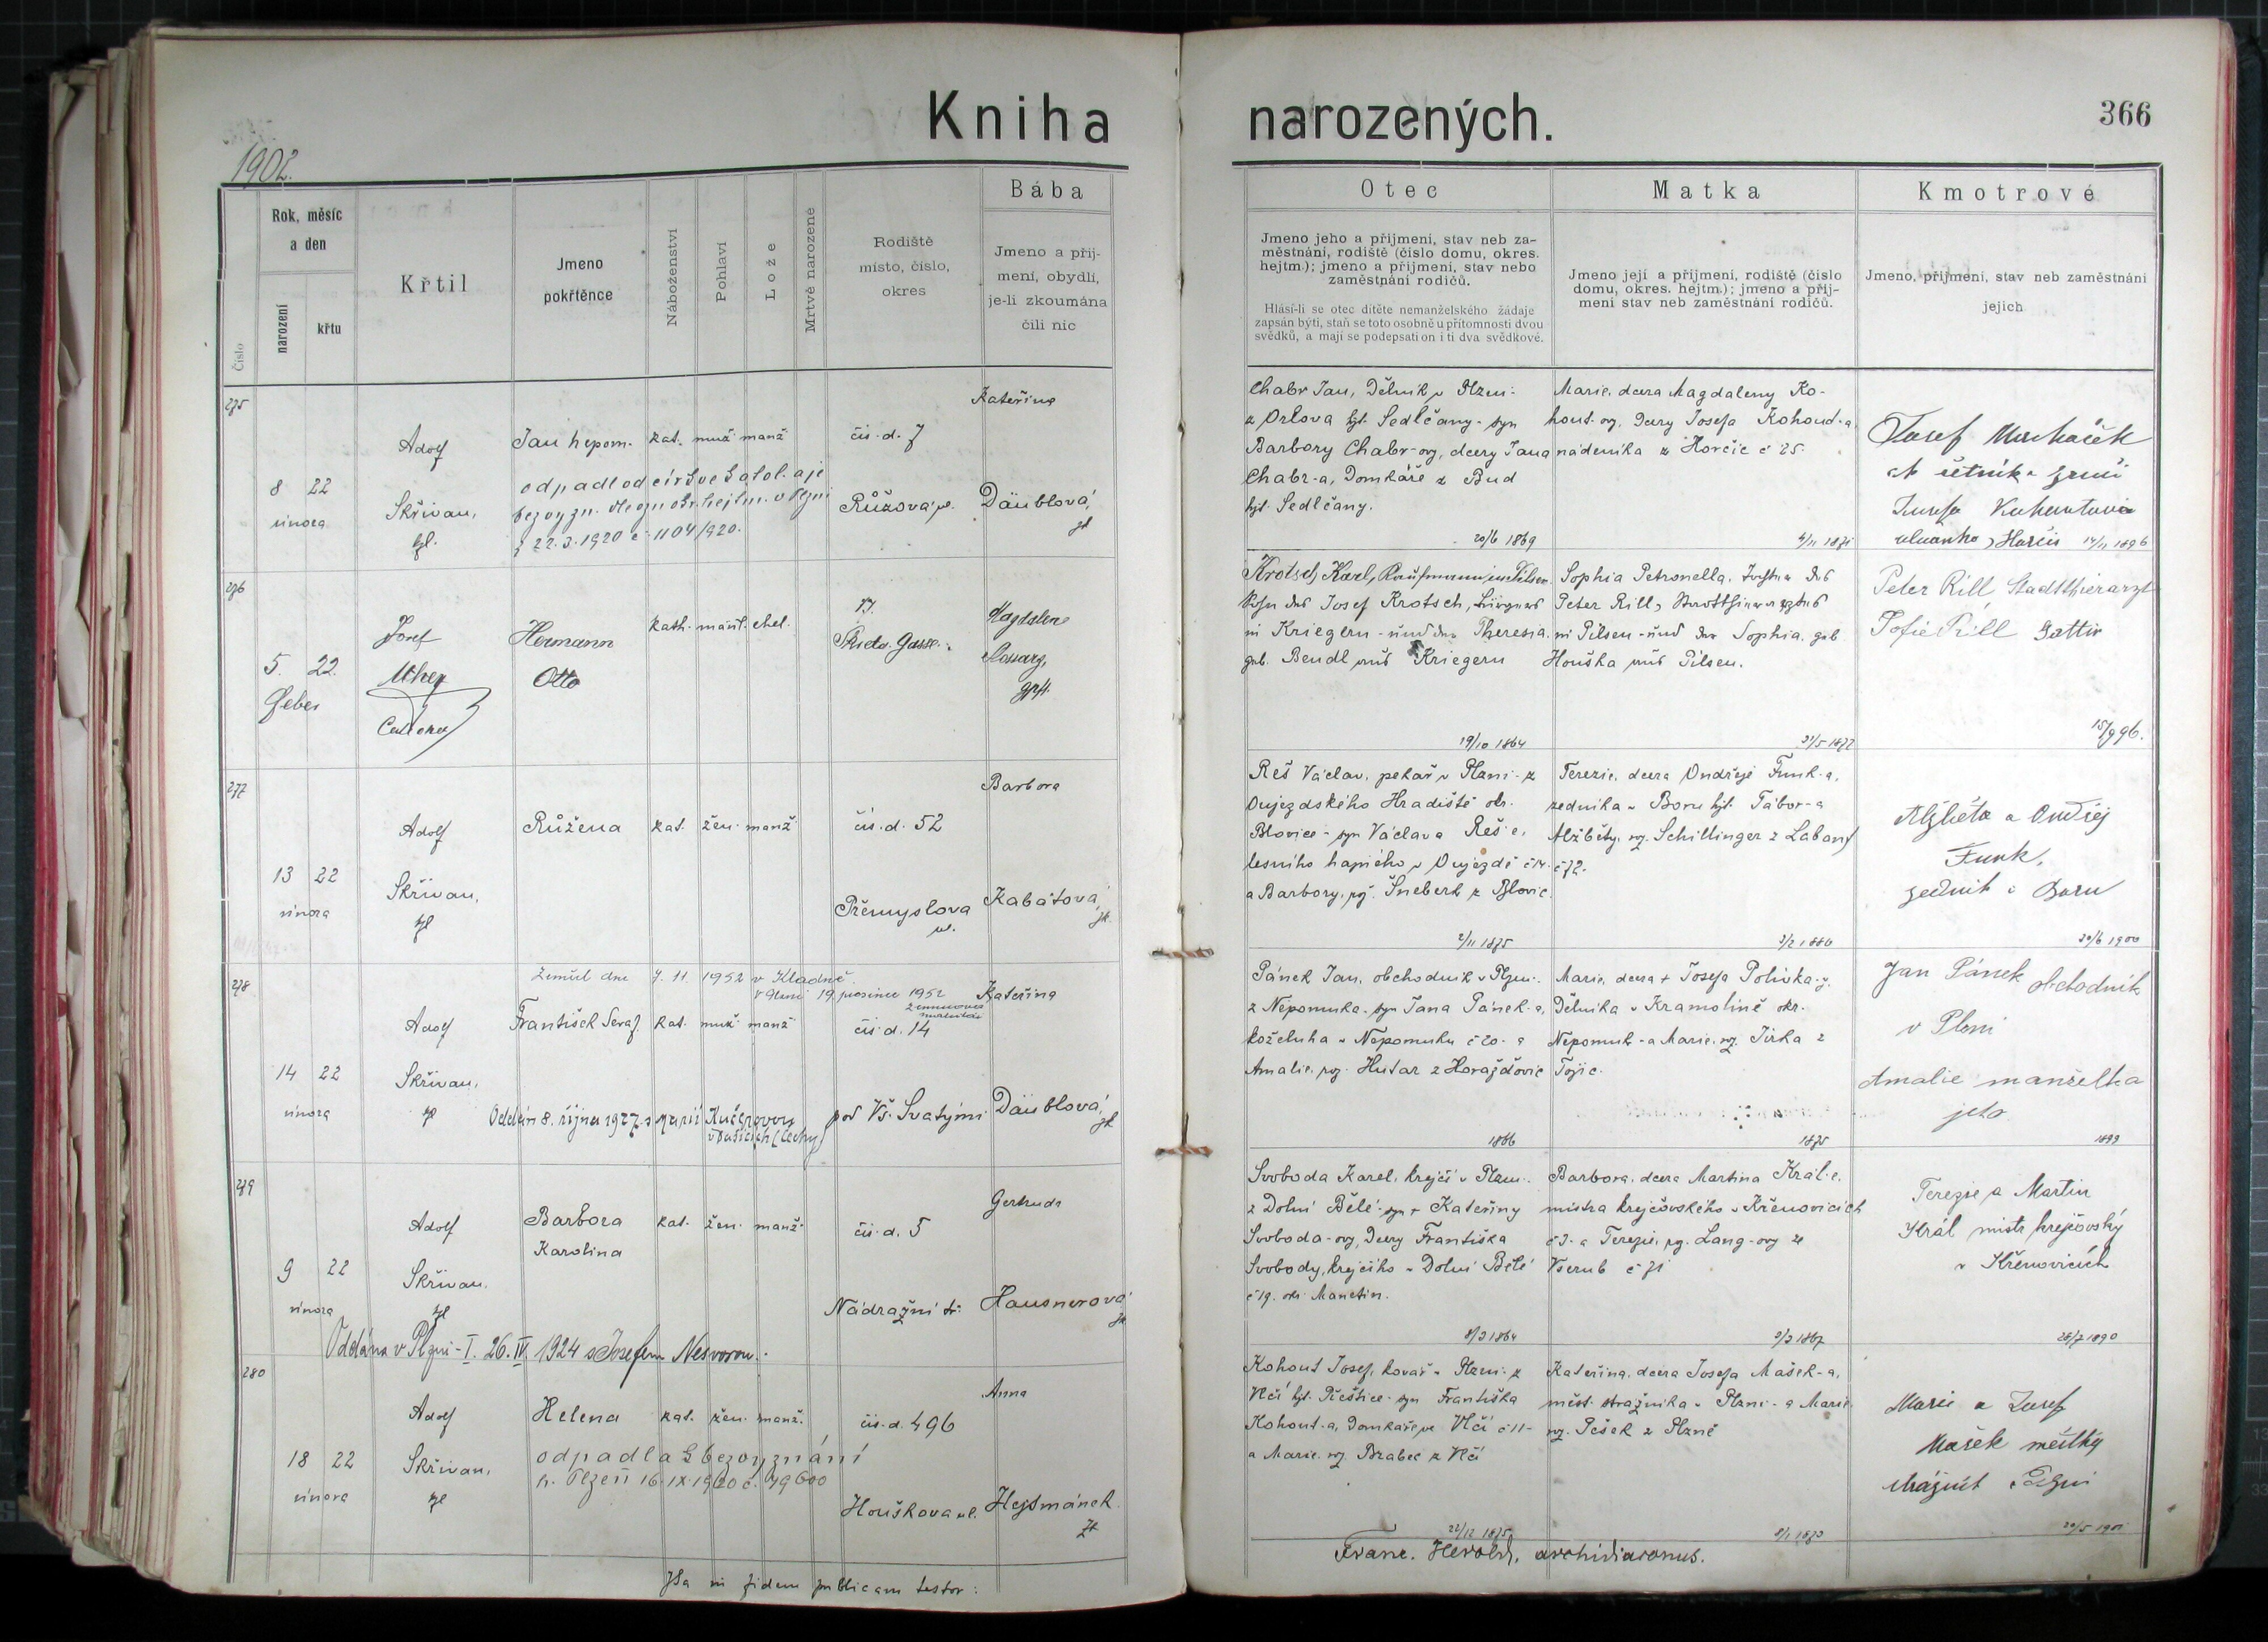 Kniha narozených.
366
1902.
Číslo
Rok, měsíc
a den
narození
křtu
Křtil
Jmeno
pokřtěnce
Náboženství
Pohlaví
Lože
Mrtvě narozené
Rodiště
místo, číslo,
okres
Bába
Jmeno a příj-
mení, obydlí,
je-li zkoumána
čili nic
Otec
Jmeno jeho a příjmení, stav neb za-
městnání, rodiště (číslo domu, okres.
hejtm.); jmeno a příjmení, stav nebo
zaměstnání rodičů.
Hlásí-li se otec dítěte nemanželského žádaje
zapsán býti, staň se toto osobně u přítomnosti dvou
svědků, a mají se podepsati on i ti dva svědkové.
Matka
Jmeno její a příjmení, rodiště (číslo
domu, okres. hejtm.); jmeno a příj-
mení stav neb zaměstnání rodičů.
Kmotrové
Jmeno, příjmení, stav neb zaměstnání
jejich
275
8 22
února
Adolf
Skřivan,
Jan Nepom. kat. muž. manž.
odpadl od církve
22.3.1920 č. 1104/920.
čís. d. 7
Růžová ul.
Kateřina
Däublová,
Chabr Jan, Dělník v Plzni-
z Orlova hjt. Sedlčany- syn
Barbory Chabr-ov, dcery Jana
Chabr-a, Domkáře z Bud
hjt. Sedlčany.
20/6 1869
Marie, dcera Magdaleny Ko-
hout-ov, Dcery Josefa Kohout-a,
nádeníka z Horčic č 25.
4/11 1871
Josef
14/11 1896
276
5. 22.
Feber
Josef
Hermann
Otto
kath. männl. ehel.
17.
Gasse.
Magdalena
Krotsch Karl, Kaufmann in Pilsen.
Sohn des Josef Krotsch, Bürgers
in Kriegern - und der Theresia
geb. Bendl aus Kriegern
19/10 1864
Sophia Petronella, Tochter des
Peter Rill, Stadtthierarztes
in Pilsen - und der Sophia geb
Houška aus Pilsen.
21/5 1872
Peter Rill Stadtthierarzt
Sofie Rill Gattin
15/9 96.
277
13 22
února
Adolf
Skřivan,
Růžena kat. žen. manž.
čís. d. 52
Přemyslova
ul.
Barbora
Kabátová,
Reš Václav, pekař v Plzni- z
Oujezdského Hradiště okr.
Blovice- syn Václava Reš-e,
lesního hajného v Oujezdě č 14.
a Barbory, roz. Šnebert z Blovic.
2/11 1875
Terezie, dcera Ondřeje Funk-a,
zedníka v Boru hjt. Tábor-a
Alžběty, roz. Schillinger z
č 72.
3/2 1880
Alžběta a Ondřej
Funk,
zedník v Boru
20/6 1900
278
Zemřel dne 7. 11. 1952 v Kladně.
V Plzni 19. prosince 1952
14 22
února
Adolf
Skřivan,
František Seraf. kat. muž. manž.
Oddán 8. října 1927 s Marií Kučerovou
(Čechy)
čís. d. 14
pod Vš. Svatými
Kateřina
Däublová,
Pánek Jan, obchodník v Plzni-
z Nepomuka- syn Jana Pánek-a,
koželuha v Nepomuku č 20- a
Amalie, roz. Hutar z Horažďovic
1866
Marie, dcera + Josefa Polívka-y,
Dělníka v Kramolíně okr.
Nepomuk- a Marie, roz. Jirka z
Tojic.
1875
Jan Pánek obchodník
v Plzni
Amalie manželka
jeho
1899
279
9 22
února
Adolf
Skřivan,
Barbora
Karolina
kat. žen. manž.
čís. d. 5
Nádražní tř.
Gertruda
Hausnerová
Oddána v Plzni - I. 26. IV. 1924 s Josefem Nesvorou.
Svoboda Karel, krejčí v Plzni-
z Dolní Bělé- syn + Kateřiny
Svoboda-ovy, Dcery Františka
Svobody, krejčího v Dolní Bělé
č 19. okr. Manetín.
8/3 1864
Barbora, dcera Martina Král-e,
mistra krejčovského v Křenovicích
č 3- a Terezie, roz. Lang-ovy ze
Všerub č 71
9/3 1867
Terezie a Martin
Král mistr krejčovský
v Křenovicích
26/7 1890
280
18 22
února
Adolf
Skřivan,
Helena kat. žen. manž.
odpadla bez vyznání
čís. d. 496
Houškova ul.
Anna
Hejtmánek
Kohout Josef, kovář v Plzni- z
Vlčí hjt. Přeštice- syn Františka
Kohout-a, Domkáře ve Vlčí č 11-
a Marie, roz. Brabec z Vlčí
22/12 1875
Kateřina, dcera Josefa Mašek-a,
měst. strážníka v Plzni- a Marie
roz. Pešek z Plzně
Marie a Josef
Mašek městský
20/5 1901
Ita in fidem publicam testor:
Franc. Herold, archidiaconus.